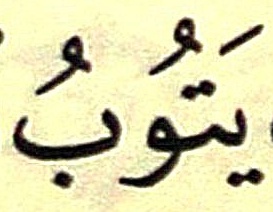 يَتُوبُ